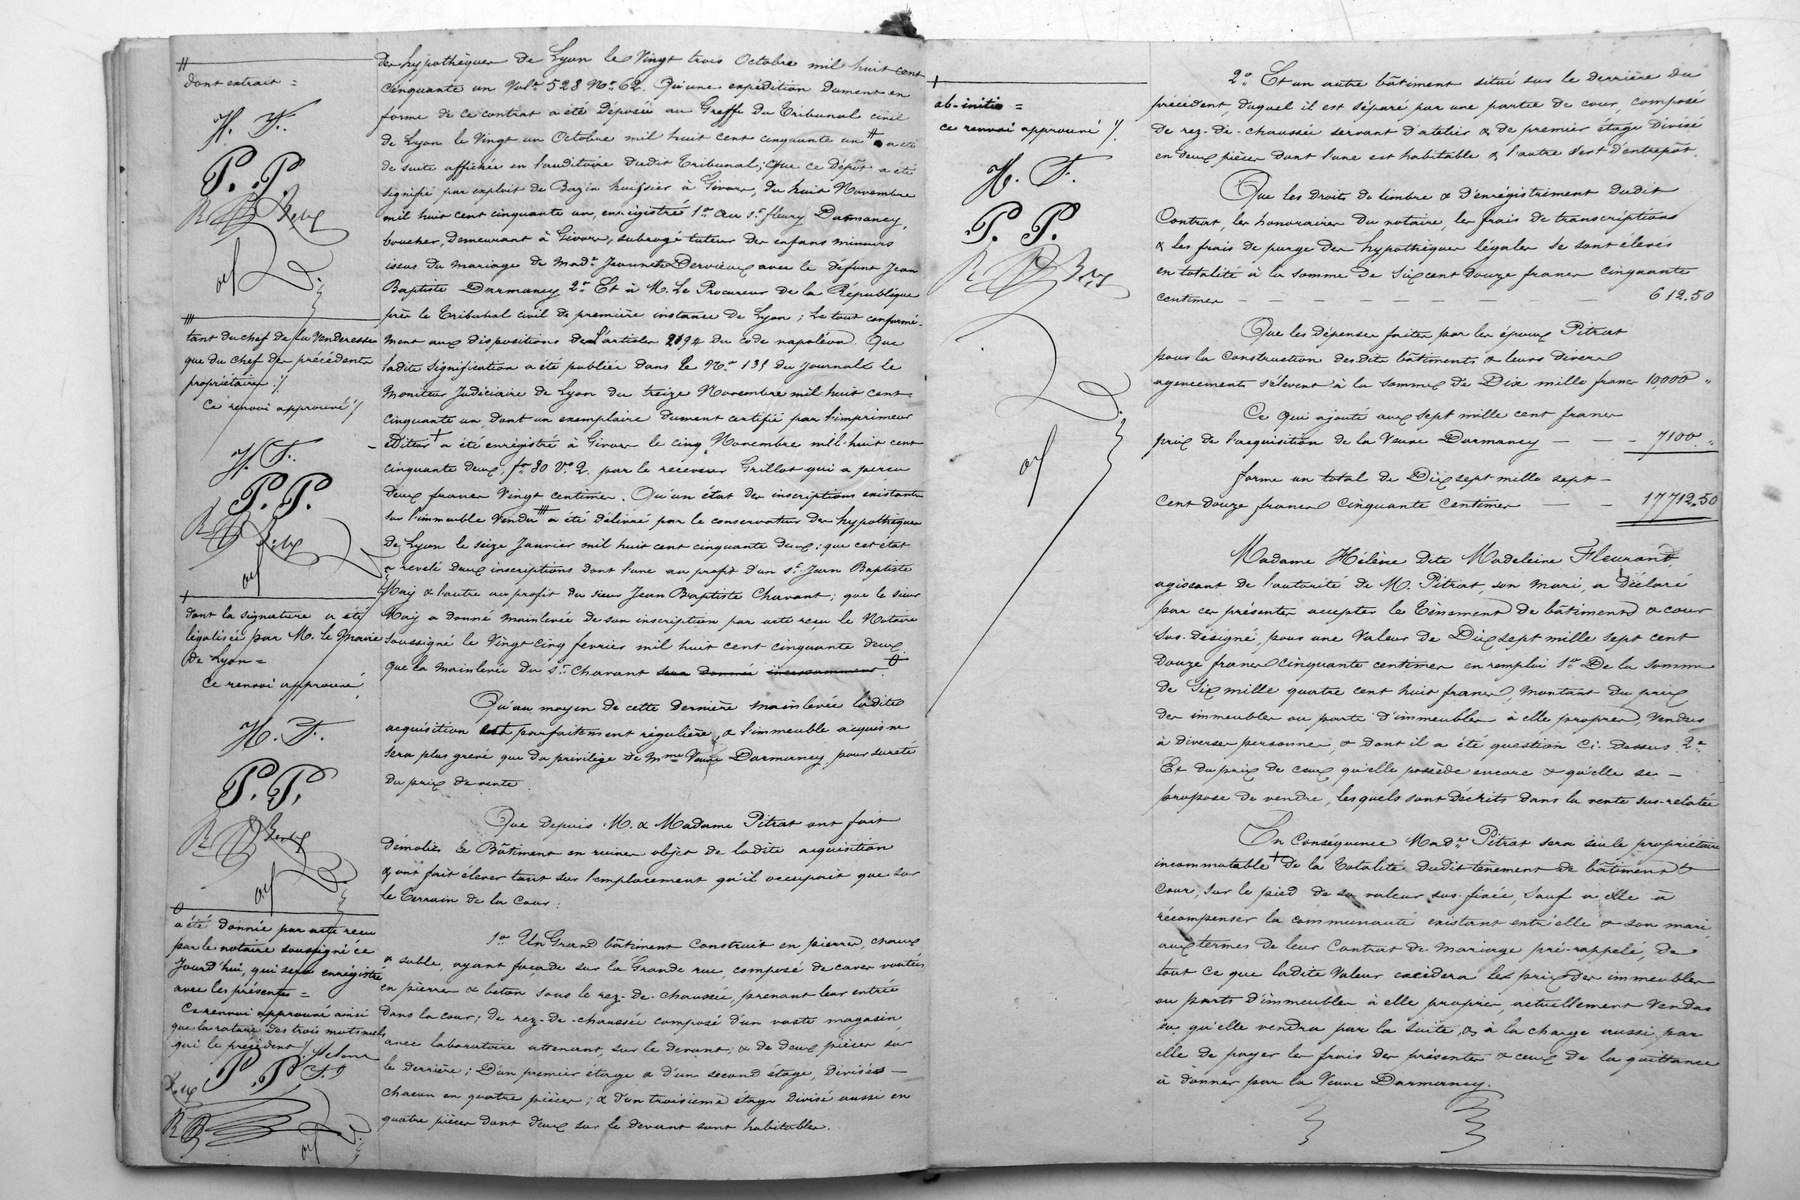 #
dont extrait =
H. F.
P. P.
#
tant du chef de la Venderesse
que du chef des précédents
propriétaires ./
Ce renvoi approuvé /
H. F.
P. P.
+
dont la signature a été
légalisée par M. le Maire
de Lyon =
Ce renvoi approuvé
H. F.
P. P.
a été donnée par acte reçu
par le notaire soussigné ce
Jourd'hui, qui sera enregistré
avec les présentes =
Ce renvoi approuvé ainsi
que la rature des trois mots nuls
qui le précèdent /.
P. P.
des hypothèques de Lyon le Vingt trois Octobre mil huit cent
Cinquante un Vol. 528 No. 62. Qu'une expédition dument en
forme de ce contrat a été déposée au Greffe du Tribunal civil
de Lyon le Vingt un Octobre mil huit cent cinquante un # a été
de suite affichée en l'auditoire dudit Tribunal; Que ce Dépôt a été
signifié par exploit de Bazin huissier à Givors, du huit Novembre
mil huit cent cinquante un, enregistré 1o. au sr. fleury Darmancy,
boucher, Demeurant à Givors, subrogé tuteur des enfans mineurs
issus du mariage de Made. Jeannete Dervieux avec le défunt Jean
Baptiste Darmancy 2o. Et à M. Le Procureur de la République
près le Tribunal civil de première instance de Lyon; Le tout conformé-
ment aux dispositions de L'article 2194 du code napoléon. Que
ladite signification a été publiée dans le No. 135 du journal le
Moniteur Judiciaire de Lyon du treize Novembre mil huit cent
Cinquante un, dont un exemplaire dument certifié par l'imprimeur
éditeur + a été enregistré à Givors le cinq Novembre mil huit cent
cinquante deux, fo. 80 Vo. 2. par le receveur Grillot qui a perçu
deux francs Vingt centimes. Qu'un état des inscriptions existantes
sur l'immeuble Vendu # a été délivré par le conservateur des hypothèques
de Lyon le seize Janvier mil huit cent cinquante deux; que cet état
a revelé Deux inscriptions dont l'une au profit d'un sr. Jean Baptiste
May & l'autre au profit du sieur Jean Baptiste Chavant; que le sieur
May a donné mainlevée de son inscription par acte reçu le Notaire
soussigné le Vingt cinq fevrier mil huit cent cinquante deux
que la mainlevée du sr. Chavant sera donnée incessamment
Qu'au moyen de cette dernière mainlevée ladite
acquisition est parfaitement régulière & l'immeuble acquis ne
sera plus grevé que du privilége de Mme Veuve Darmancy, pour sureté
du prix de vente.
Que depuis M. & Madame Pitrat ont fait
démolir le Bâtiment en ruines objet de ladite acquisition
& ont fait élever tant sur l'emplacement qu'il occupait que sur
le Terrain de la Cour:
1o. Un Grand bâtiment construit en pierres, chaux
& sable, ayant façade sur la Grande rue, composé de caves voutées
en pierres & béton sous le rez-de-chaussée, prenant leur entrée
Dans la cour; de rez-de-chaussée composé d'un vaste magasin
avec laboratoire attenant, sur le devant; & de deux pièces sur
le derrière; D'un premier étage & d'un second étage, divisés —
chacun en quatre pièces; & d'un troisième étage divisé aussi en
quatre pièces dont deux sur le devant sont habitables.
+
ab-initio =
ce renvoi approuvé ./.
H. F.
P. P.
2o. Et un autre bâtiment situé sur le derrière du
précédent, duquel il est séparé par une partie de cour, composé
de rez-de-chaussée servant d'atelier & de premier étage divisé
en deux pièces dont l'une est habitable & l'autre sert d'entrepôt.
Que les Droits de timbre & d'enrégistrement dudit
Contrat, les honoraires du notaire, les frais de transcriptions
& les frais de purge des hypothèques légales se sont élevés
en totalité à la somme de Six cent douze francs cinquante
centimes — — — — — — — 612.50
Que les dépenses faites par les époux Pitrat
pour la construction desdits bâtiments & leurs divers
agencements s'élèvent à la somme de Dix mille francs 10000 "
Ce qui ajouté aux sept mille cent francs
prix de l'acquisition de la Veuve Darmancy — — - 7100. "
forme un total de Dix sept mille sept —
Cent douze francs Cinquante Centimes — - 17712.50
Madame Hélène dite Madeleine Fleurand
agissant de l'autorité de M. Pitrat, son mari, a Déclaré
par ces présentes accepter le Tènement de bâtiments & cour
sus-désigné, pour une Valeur de Dix sept mille sept cent
Douze francs cinquante centimes en remploi 1o. De la somme
de Six mille quatre cent huit francs, montant du prix
des immeubles ou parts d'immeubles à elle propres Vendus
à diverses personnes & dont il a été question ci-dessus 2o.
Et du prix de ceux qu'elle possède encore & qu'elle se —
propose de vendre, lesquels sont décrits dans la vente sus-relatée
En Conséquence Made. Pitrat sera seule propriétaire
incommutable + de la Totalité dudit tènement de bâtiments &
Cour, sur le pied de sa valeur sus-fixée, sauf à elle à
récompenser la communauté existant entr'elle & son mari
aux termes de leur Contrat de Mariage pré-rappelé, de
tout ce que ladite Valeur excèdera les prix des immeubles
ou parts d'immeubles à elle propres, actuellement Vendus
ou qu'elle vendra par la suite, & à la charge aussi par
elle de payer les frais des présentes & ceux de la quittance
à donner par la Veuve Darmancy.